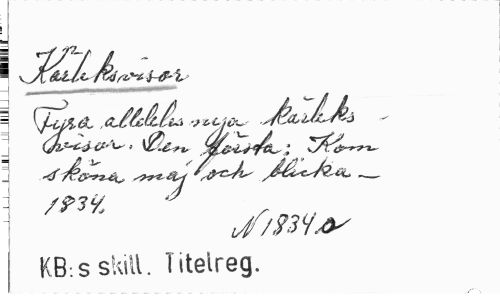 Kärleksvisor
Fyra alldeles nya kärleks-
visor. Den första: Kom
sköna maj och blicka —
1834.
N 1834 a
KB:s skill. Titelreg.